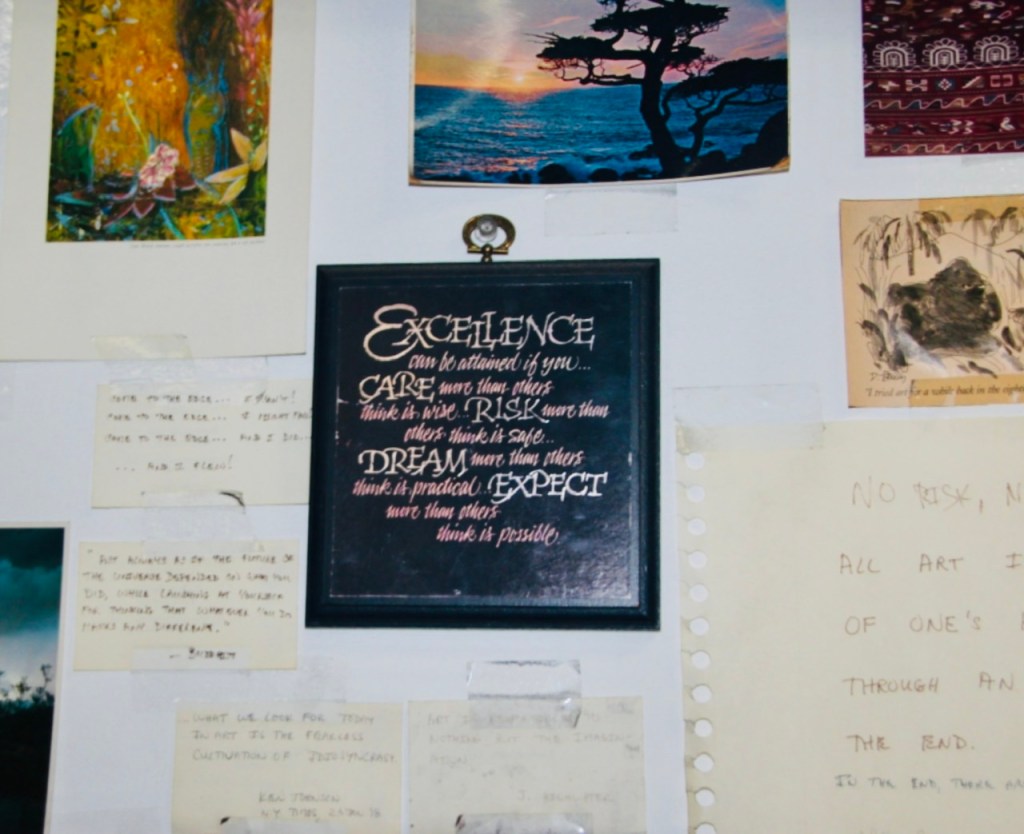 EXCELLENCE
can be attained if you...
CARE more than others
think is wise... RISK more than
others think is safe...
DREAM more than others
think is practical... EXPECT
more than others
think is possible.
COME TO THE EDGE...
COME TO THE EDGE...
COME TO THE EDGE... AND I DID...
... AND I FLEW!
ACT ALWAYS AS IF THE FUTURE OF
THE UNIVERSE DEPENDED ON WHAT YOU
DID, WHILE LAUGHING AT YOURSELF
FOR THINKING THAT WHATEVER YOU DO
MAKES ANY DIFFERENCE."
WHAT WE LOOK FOR TODAY
IN ART IS THE FEARLESS
CULTIVATION OF IDIOSYNCRASY
KEN JOHNSON
N.Y. TIMES
NOTHING BUT THE
"I tried art for a while back in the
NO RISK,
ALL ART
OF ONE'S
THROUGH AN
THE END.
IN THE END, THERE